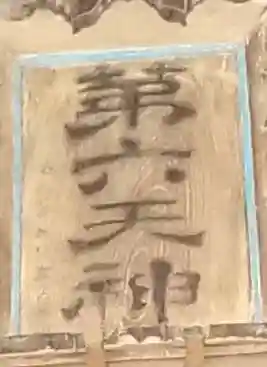 第六天神